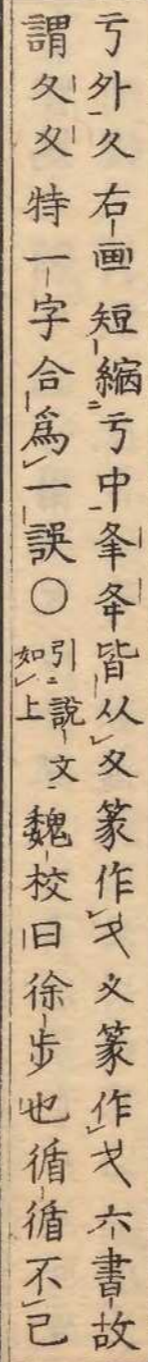 亏外久右画短縮亏中夆夅皆从夂篆作夂夊篆作夊六書故
謂夂夊特一字合爲一誤〇引說文如上魏校曰徐步也循循不已